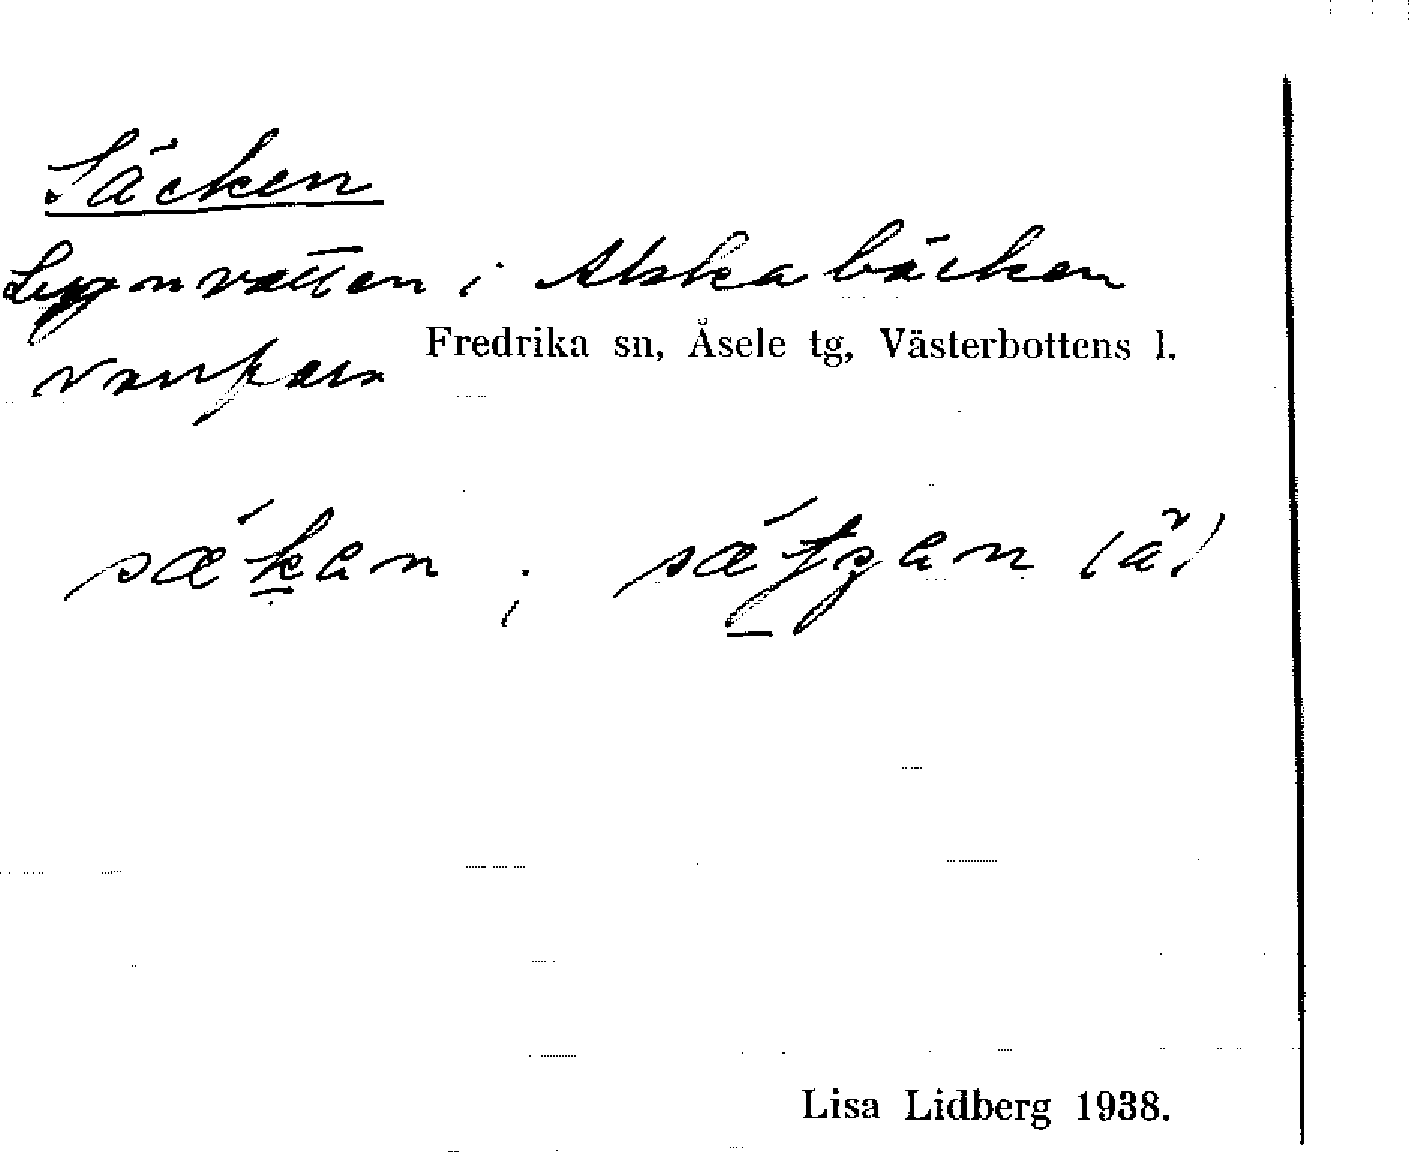 Säcken
Lugnvatten i Alskabäcken
Fredrika sn, Åsele tg, Västerbottens l.
sǽkan ; sǽtʒan (ä)
Lisa Lidberg 1938.